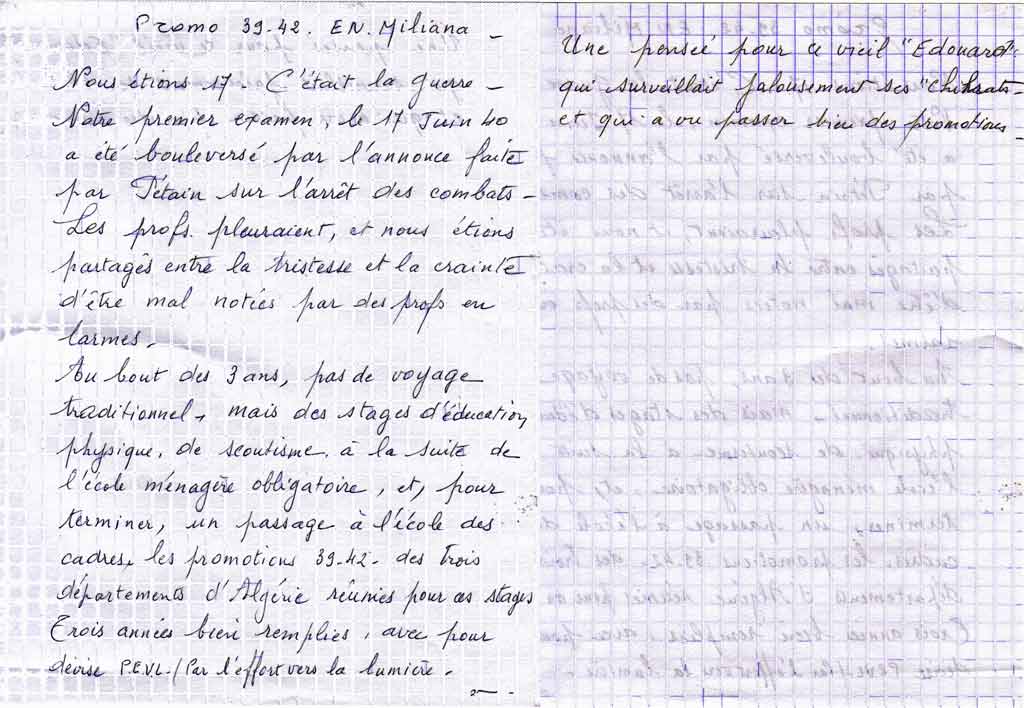 Promo 39.42. EN. Miliana -
Nous étions 17. C'était la guerre -
Notre premier examen, le 17 Juin 40
a été bouleversé par l'annonce faite
par Pétain sur l'arrêt des combats -
Les profs. pleuraient, et nous étions
partagés entre la tristesse et la crainte
d'être mal notées par des profs en
larmes.
Au bout des 3 ans, pas de voyage
traditionnel, mais des stages d'éducation
physique, de scoutisme, à la suite de
l'école ménagère obligatoire, et, pour
terminer, un passage à l'école des
cadres, les promotions 39.42. des trois
départements d'Algérie réunies pour ces stages
Trois années bien remplies, avec pour
devise P.E.V.L. / Par l'effort vers la lumière.
Une pensée pour ce vieil "Edouard"
qui surveillait jalousement ses
et qui a vu passer bien des promotions -